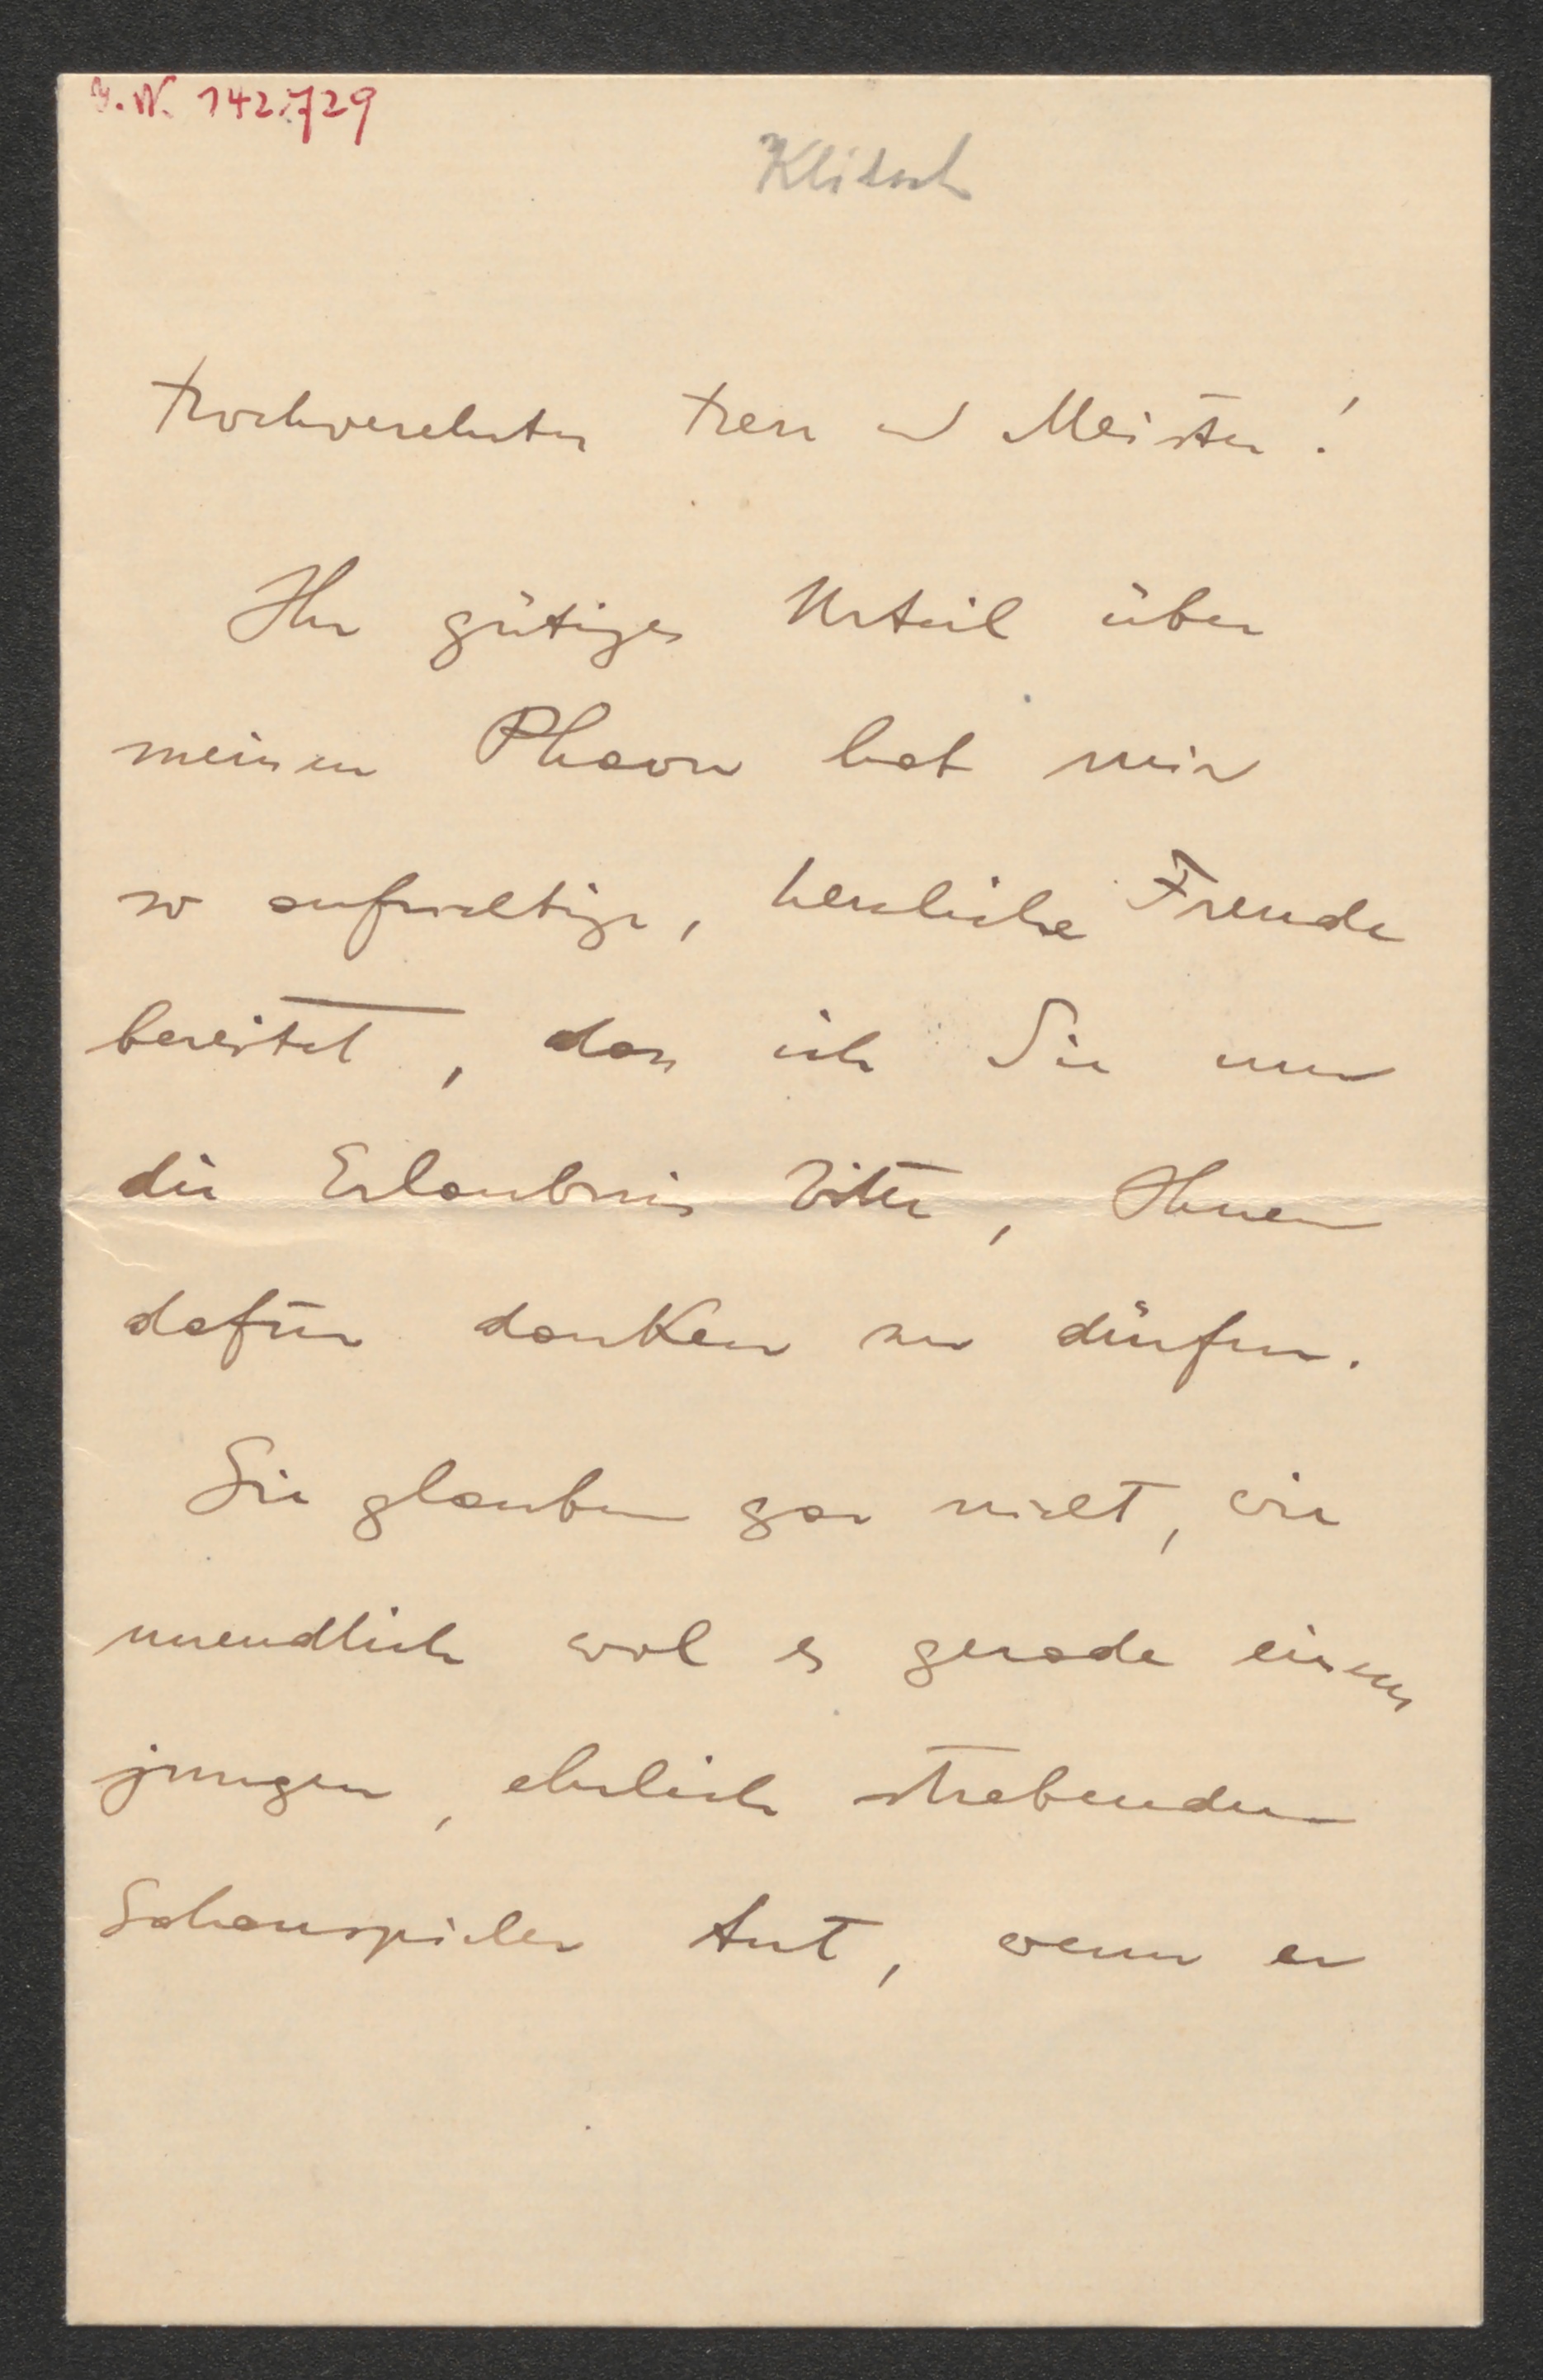 J.N. 142.729
Klitsch
Hochverehrter Herr und Meister!
Ihr gütiges Urteil über
meinen Phaon hat mir
so aufrichtige, herzliche Freude
bereitet, dass ich Sie um
die Erlaubnis bitte, Ihnen
dafür danken zu dürfen.
Sie glauben gar nicht, wie
unendlich wol es gerade einem
jungen, ehrlich strebenden
Schauspieler tut, wenn er